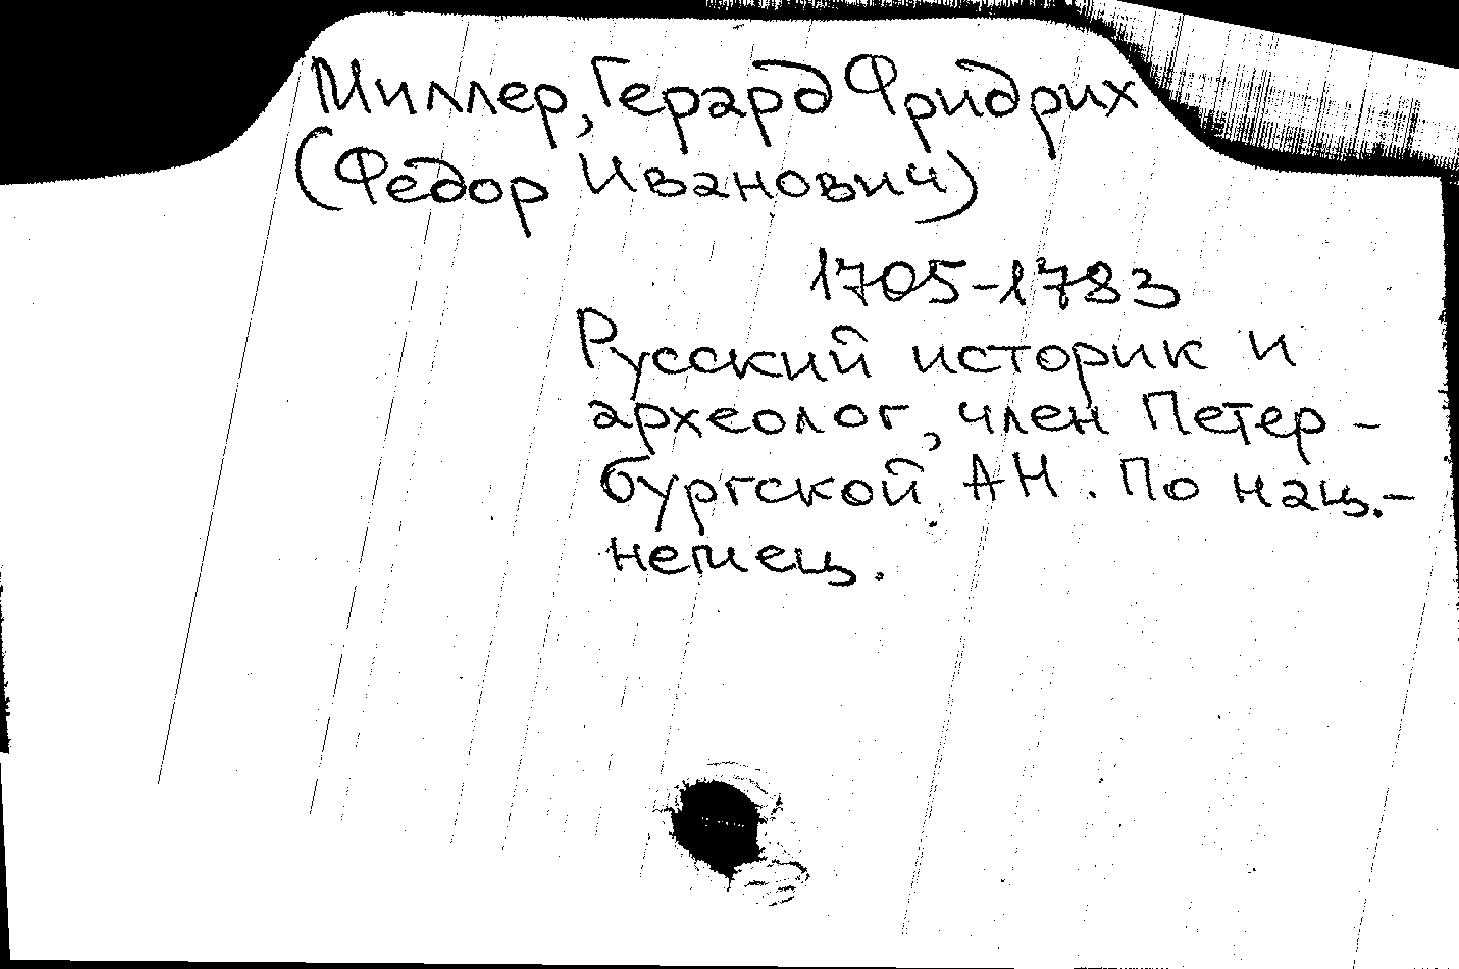 Миллер, Герард Фридрих
(Федор Иванович)
1705-1783
Русский историк и
археолог, член Петер-
бургской АН. По нац.-
немец.